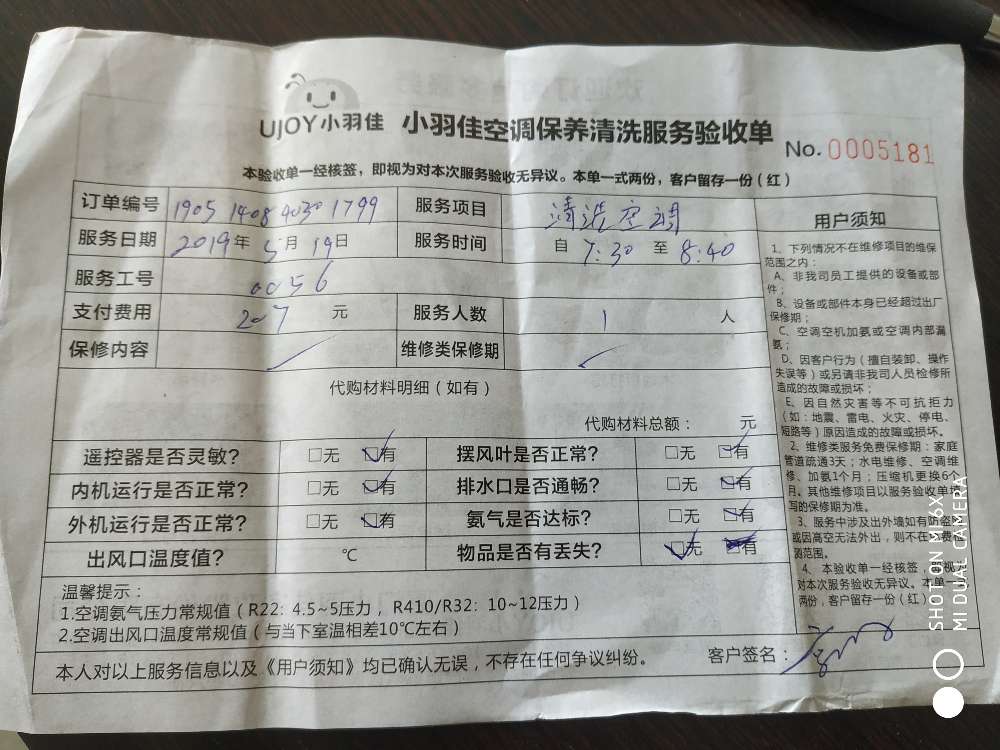 UJOY小羽佳 小羽佳空调保养清洗服务验收单
No. 0005181
本验收单一经核签，即视为对本次服务验收无异议。本单一式两份，客户留存一份(红)
订单编号 1905 1408 4030 1799 服务项目 清洗空调
服务日期 2019年 5月 19日 服务时间 自 7:30 至 8:40
服务工号 0056
支付费用 207 元 服务人数 1 人
保修内容 维修类保修期
代购材料明细(如有)
代购材料总额: 元
遥控器是否灵敏? □无 □有 摆风叶是否正常? □无 □有
内机运行是否正常? □无 □有 排水口是否通畅? □无 □有
外机运行是否正常? □无 □有 氨气是否达标? □无 □有
出风口温度值? ℃ 物品是否有丢失? □无 有
温馨提示:
1.空调氨气压力常规值(R22: 4.5~5压力，R410/R32: 10~12压力)
2.空调出风口温度常规值(与当下室温相差10℃左右)
本人对以上服务信息以及《用户须知》均已确认无误，不存在任何争议纠纷。 客户签名:
用户须知
1、下列情况不在维修项目的维保
范围之内:
A、非我司员工提供的设备或部
件;
B、设备或部件本身已经超过出厂
保修期;
C、空调空机加氨或空调内部漏
氨;
D、因客户行为(擅自装卸、操作
失误等)或另请非我司人员检修所
造成的故障或损坏;
E、因自然灾害等不可抗拒力
(如:地震、雷电、火灾、停电、
短路等)原因造成的故障或损坏。
2、维修类服务免费保修期:家庭
管道疏通3天;水电维修、空调维
修、加氨1个月;压缩机更换6个
月。其他维修项目以服务验收单填
写的保修期为准。
3、服务中涉及出外墙如有防盗
或因高空无法外出，则不在免费检
测范围。
4、本验收单一经核签，即视
对本次服务验收无异议。本单一
两份，客户留存一份(红)
SHOT ON MI 6X
MI DUAL CAMERA